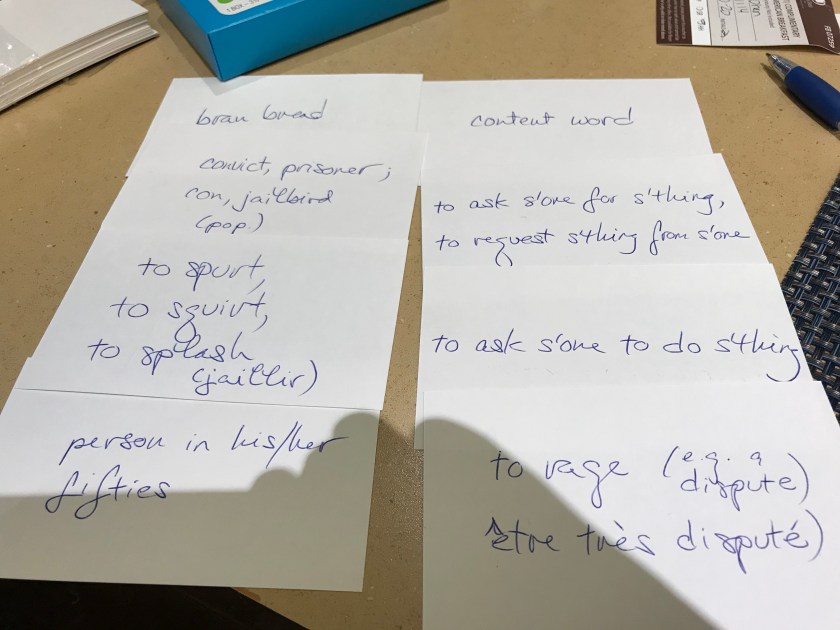 bran bread
convict, prisoner;
con, jailbird
(pop.)
to spurt,
to squirt,
to splash
(jaillir)
person in his/her
fifties
content word
to ask s'one for s'thing,
to request s'thing from s'one
to ask s'one to do s'thing
to rage (e.g. a
dispute)
être très disputé)